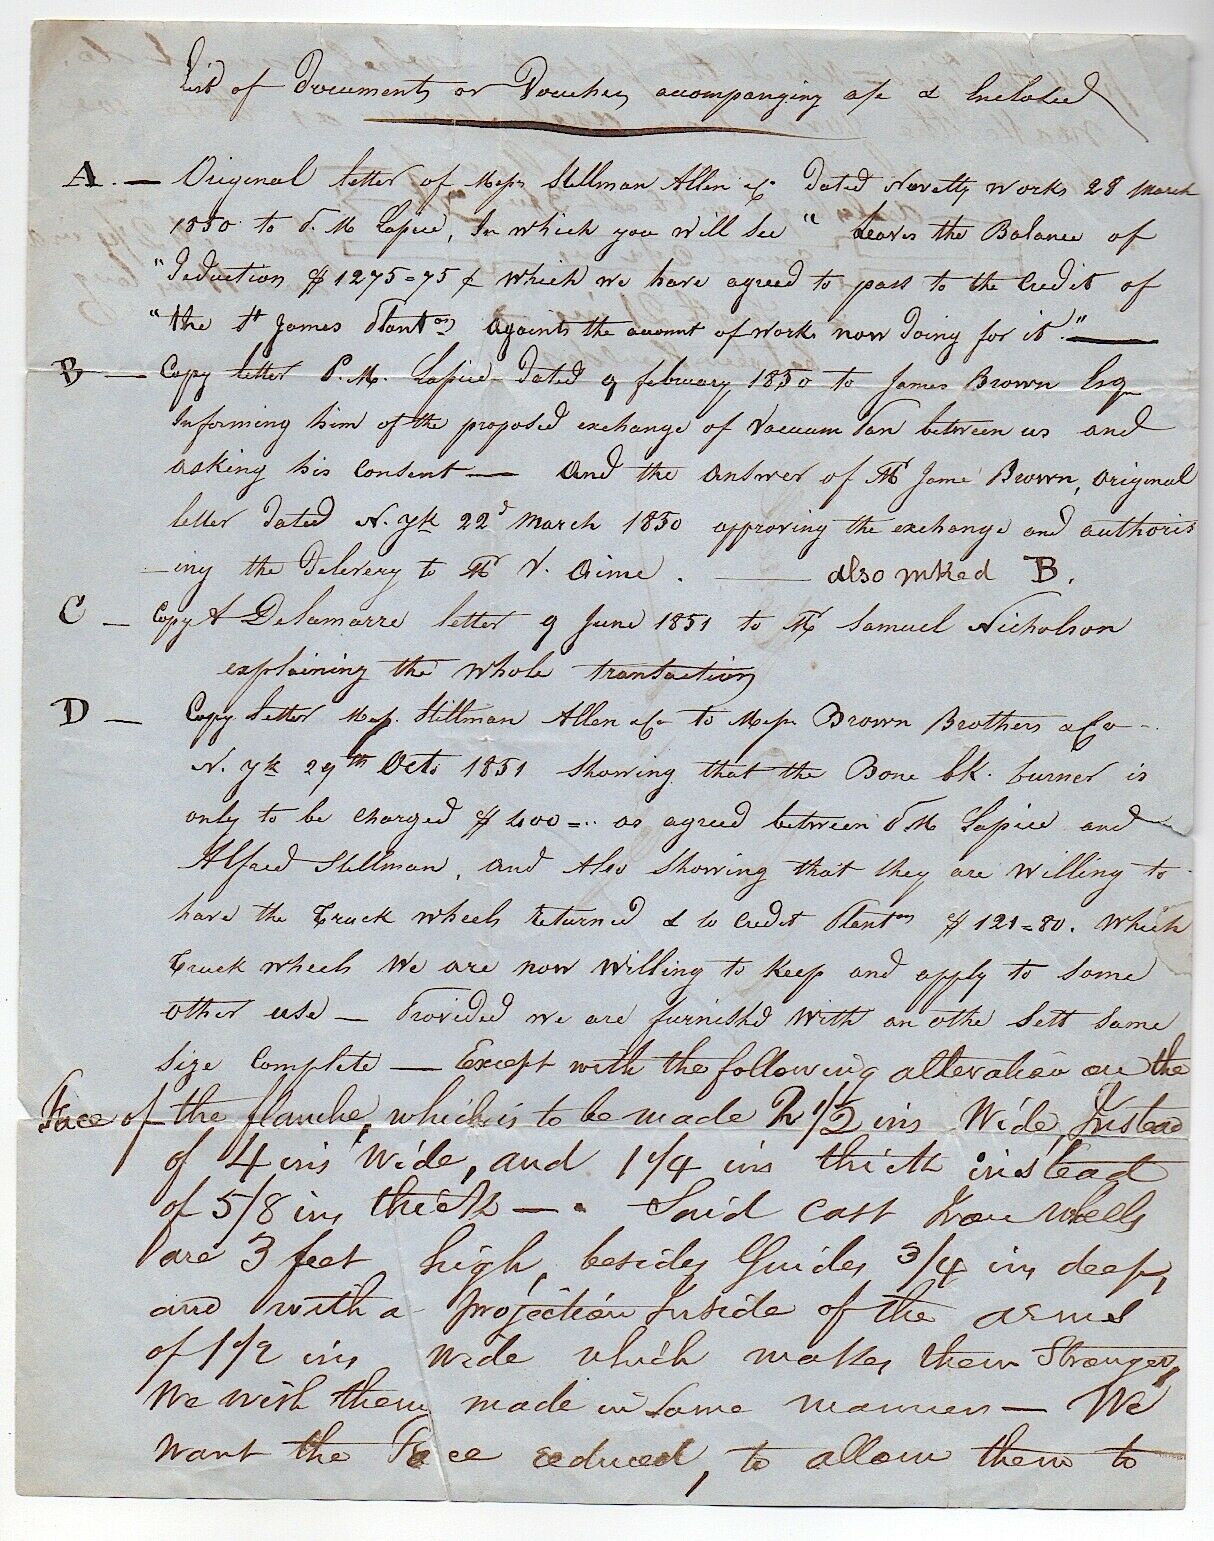 List of Documents or Vouchers accompanging a/c & Enclosed
A. — Original letter of Mess Stillman Allen &Co dated Novelty Works 28 March
1850 to P. M Lapice, In which you will see " Leaves the Balance of
"Deduction $1275=75 ¢ which we have agreed to pass to the Credit of
"the St James Planton againts the amount of work now doing for it." —
B — Copy letter P. M. Lapice dated 9 february 1850 to James Brown Esq
Informing him of the proposed exchange of Vacuum Pan between us and
asking his Consent — and the answer of Mr Jame Brown, original
letter dated N. Yk 22d March 1850 approving the exchange and authoris
-ing the Delevery to Mr V. Aime. — also mked B.
C — Copy A Delamarre letter 9 June 1851 to Mr Samuel Nicholson
explaining the whole transaction
D — Copy letter Mess. Stillman Allen &Co to Mess Brown Brothers &Co -
N. Yk 29th Octo 1851 Showing that the Bone bk. burner is
only to be charged $400=.. as agreed between P M Lapice and
Alfred Stillman, and also showing that they are willing to
have the Truck wheels returned & to Credit Planton $121=80. Which
Truck wheels We are now willing to keep and apply to some
other use — Provided we are furnishd with an othe sett same
size complete — Except with the following alteration on the
Face of the flanche, which is to be made 2 1/2 ins Wide, Instead
of 4 ins Wide, and 1 1/4 ins thick instead
of 5/8 ins thick — . Said cast Iron wheels
are 3 feet high, besides Guides 3/4 ins deep,
and with a projection Inside of the arms
of 1 1/2 ins Wide which makes them Stronger,
We wish them made in same manner — We
want the Face reduced, to allow them to